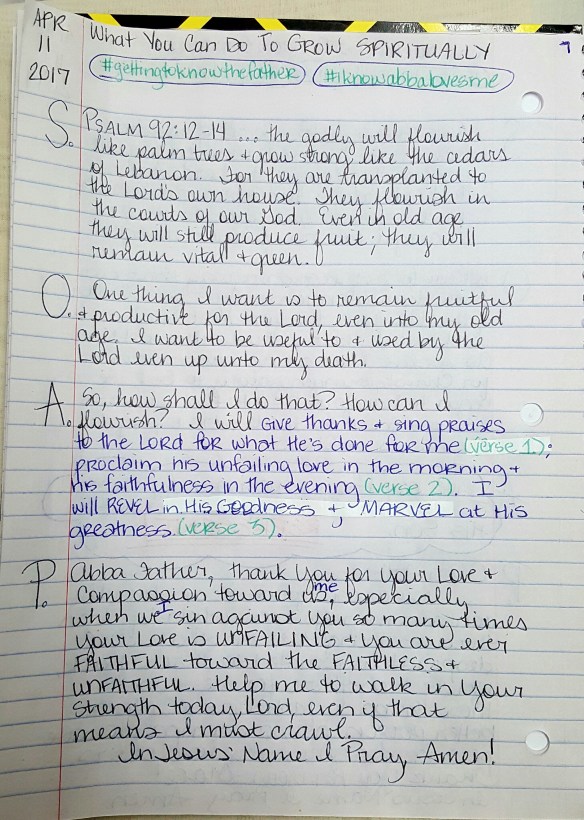 APR
11
2017
What You Can Do To GROW SPIRITUALLY
#gettingtoknowthefather #iknowabbalovesme
S. PSALM 92:12-14 ... the godly will flourish
like palm trees + grow strong like the cedars
of Lebanon. For they are transplanted to
the Lord's own house. They flourish in
the courts of our God. Even in old age
they will still produce fruit; they will
remain vital + green.
O. One thing I want is to remain fruitful
+ productive for the Lord, even into my old
age. I want to be useful to + used by the
Lord even up unto my death.
A. So, how shall I do that? How can I
flourish? I will GIVE thanks + sing praises
to the LORD for what He's done for me (verse 1);
proclaim his unfailing love in the morning +
his faithfulness in the evening (verse 2). I
will REVEL in His Goodness + MARVEL at His
greatness (verse 3).
P. Abba Father, thank You for your Love +
Compassion toward us, me especially
when we I sin against You so many times
Your Love is UNFAILING + You are ever
FAITHFUL toward the FAITHLESS +
UNFAITHFUL. Help me to walk in Your
Strength today, Lord, even if that
means I must crawl.
In Jesus' Name I Pray, Amen!